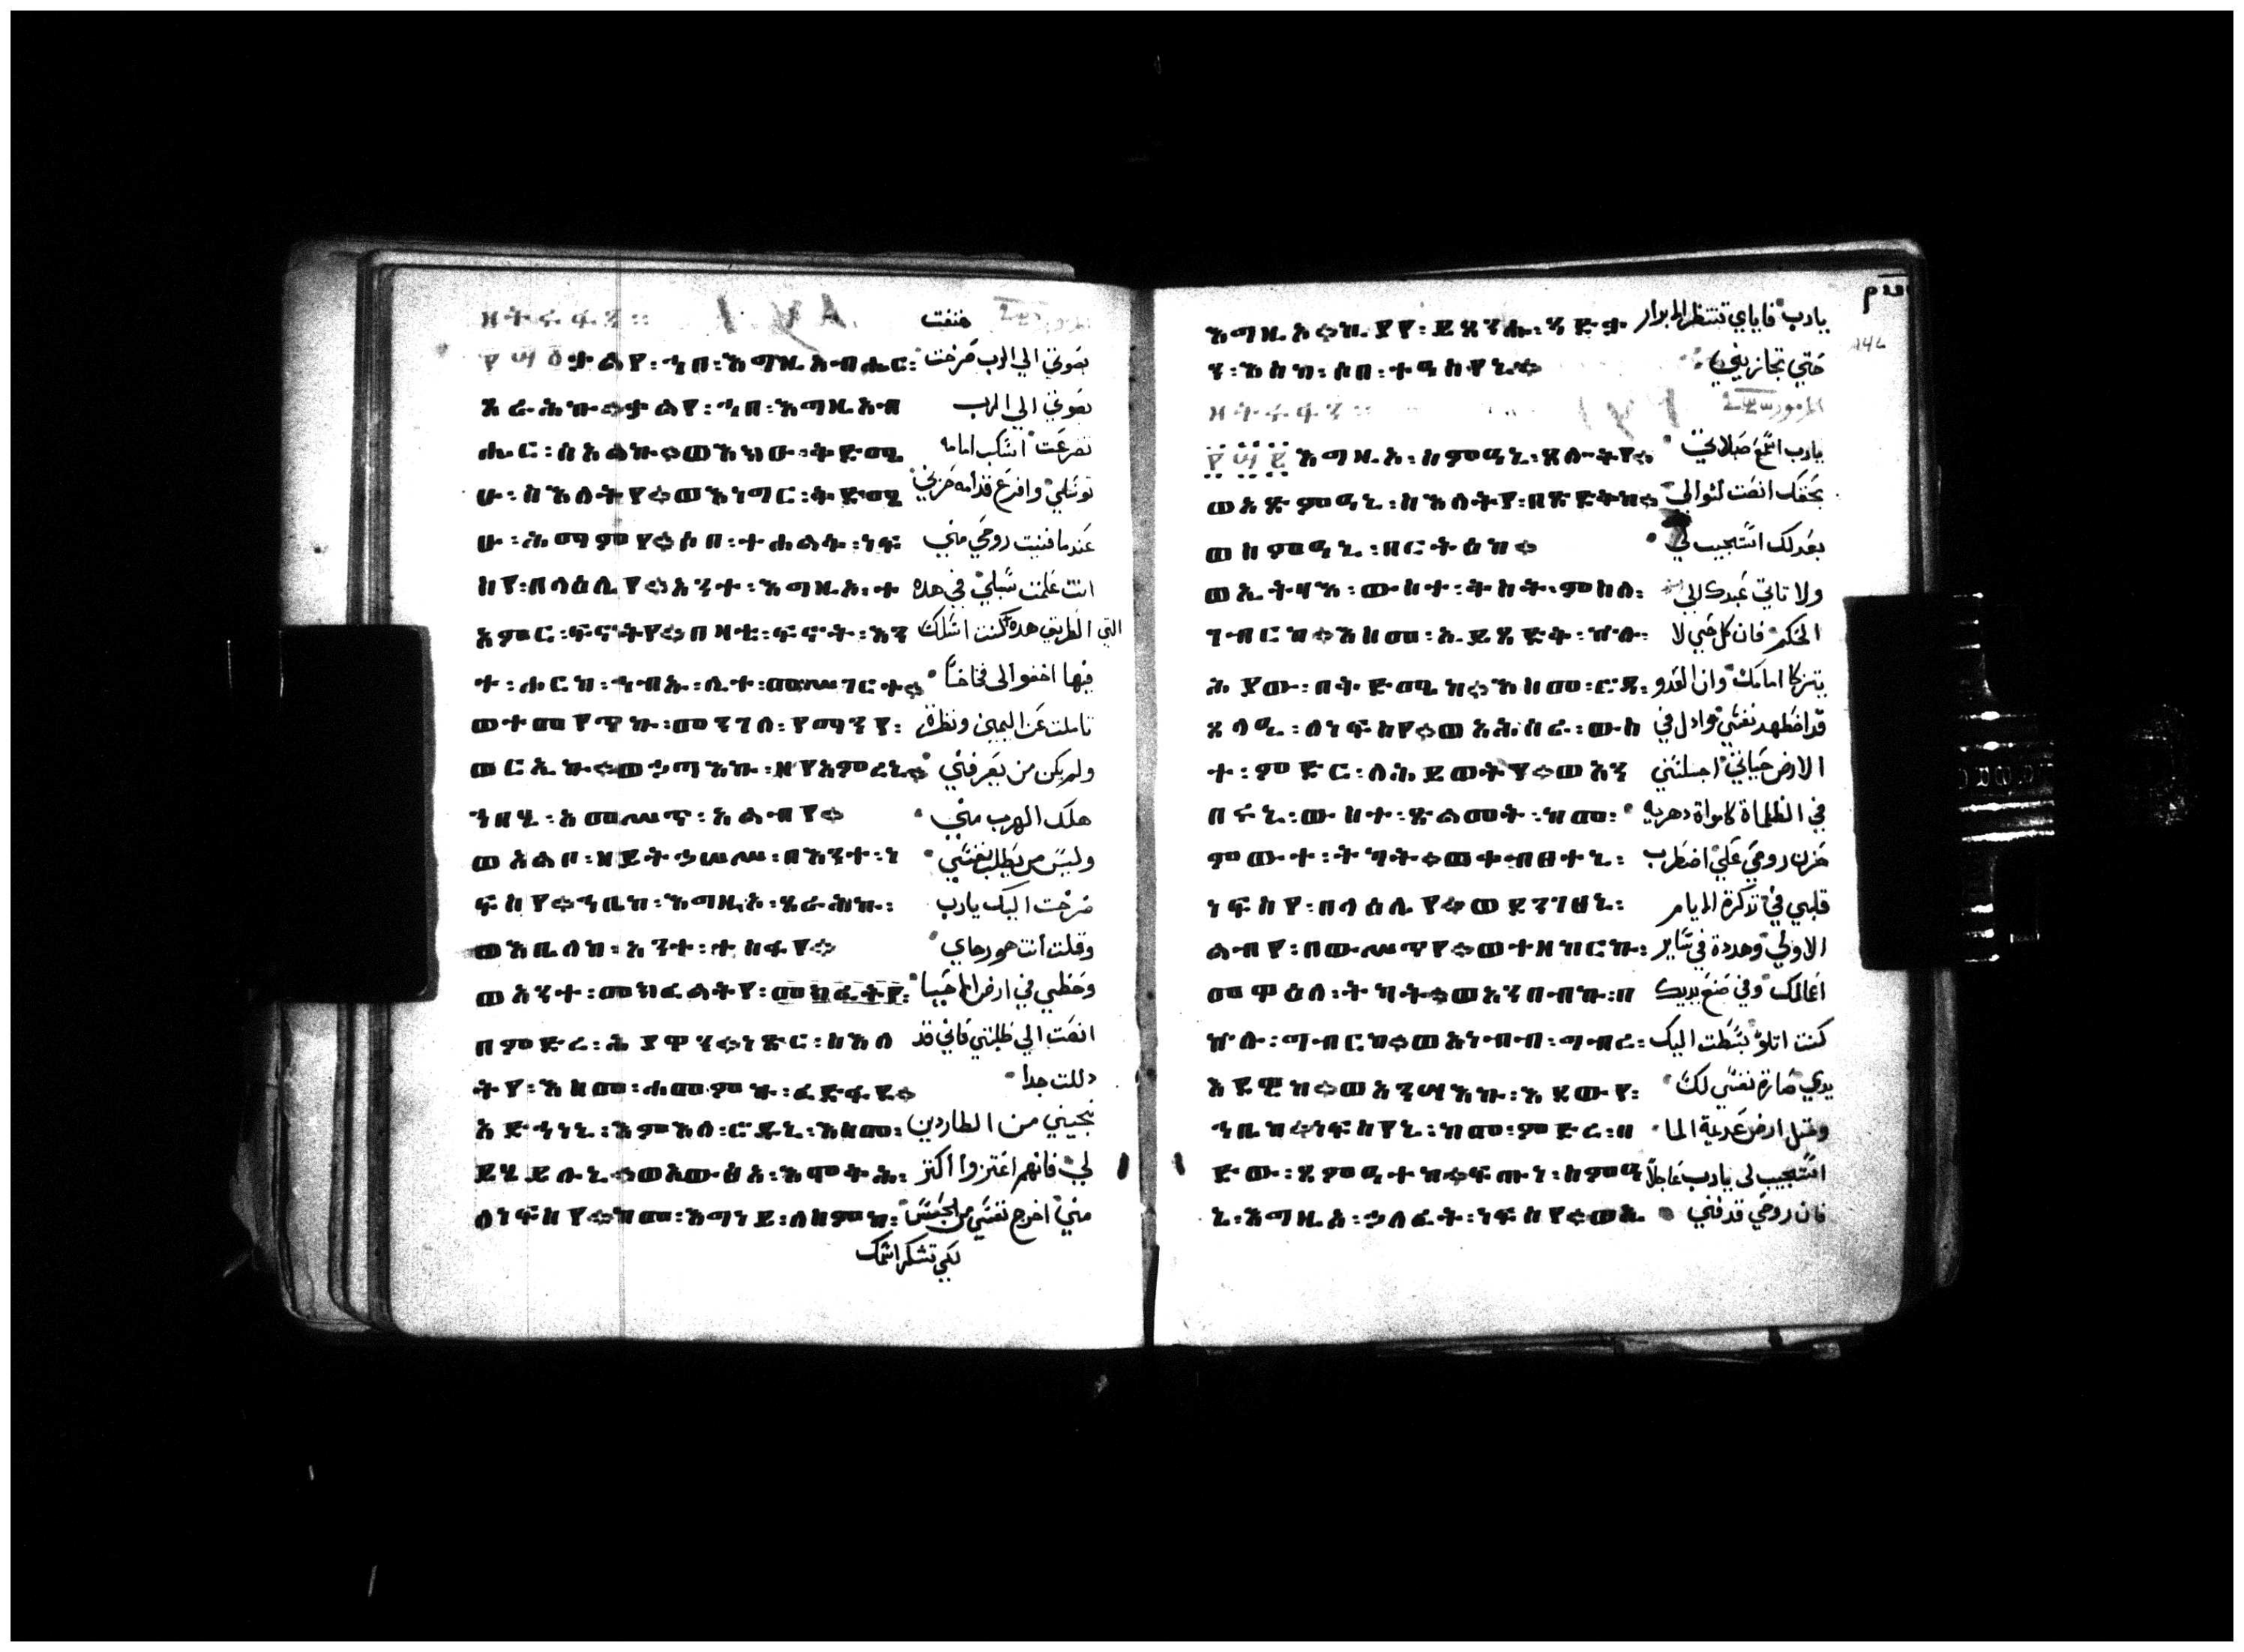 ቃልየ፡ኀበ፡እግዚአብሔር፡ بصوتي الي الرب صرخت
ጸራሕኩ፨ቃልየ፡ኀበ፡እግዚአብ بصوتي الي الرب
ሔር፡ሰአልኩ፨ወእክዑ፡ቅድሜ تضرعت اسكب امامه
ሁ፡ስእለትየ፨ወእነግር፡ቅድሜ توسلي وافرغ قدامه حزني
ሁ፡ሕማምየ፨ሶበ፡ተሐልቅ፡ነፍ عند ما فنيت روحي مني
ስየ፡በላዕሌየ፨አንተ፡እግዚኦ፡ተ انت علمت سبلي في هده
አምር፡ፍኖትየ፨በዛቲ፡ፍኖት፡እን الطريق هده التي كنت اسلك
ተ፡ሖርኩ፡ኀብኡ፡ሊተ፡መሥገርተ፨ فيها اخفوا لي فخاخاً
ወተመየጥኩ፡መንገለ፡የማንየ፡ تاملت عن اليمين ونظرت
ወርኢኩ፨ወኃጣእኩ፡ዘያአምረኒ፨ ولم يكن من يعرفني
ኀበሂ፡አመሥጥ፡አልብየ፨ هلك الهرب مني
ወአልቦ፡ዘይትኃሠሥ፡በእንተ፡ነ وليس من يطلب نفسي
ፍስየ፨ኀቤከ፡እግዚኦ፡ጸራሕኩ፡ صرخت اليك يارب
ወእቤለከ፡አንተ፡ተስፋየ፨ وقلت انت هو رجاي
ወአንተ፡መክፈልትየ፡መክፈልትየ፡ وحظي في ارض الاحيا
በምድረ፡ሕያዋን፨ነጽር፡ስእለ انصت الي طلبتي فاني قد
ትየ፡እስመ፡ሐመምኩ፡ፈድፋደ፨ دللت جدا
አድኅነኒ፡እምእለ፡ሮዱኒ፡እስመ፡ نجيني من الطاردين
ይሄይሉኒ፨ወአውፅአ፡እሞቅሕ፡ لي فانهم اعتزوا اكتر
ለነፍስየ፨ከመ፡እግነይ፡ለስምከ፡ مني اخرج نفسي من الحبس
لكي تشكر اسمك
እግዚኦ፨ኪያየ፡ይጸንሑ፡ጻድቃ يارب فاياي تنتظر الابرار
ን፡እስከ፡ሶበ፡ተዐስየኒ፨ حتي تجازيني
المزمور
እግዚኦ፡ስምዐኒ፡ጸሎትየ፨ يارب اسمع صلاتي
ወአጽምዐኒ፡ስእለትየ፡በጽድቅከ፨ بحقك انصت لسوالي
ወስምዐኒ፡በርትዕከ፨ بعدلك استجيب لي
ወኢትባእ፡ውስተ፡ቅስት፡ምስለ፡ ولا تاتي عبدك الي
ገብርከ፨እስመ፡ኢይጸድቅ፡ኵሉ፡ الحكم فان كل حي لا
ሕያው፡በቅድሜከ፨እስመ፡ሮዳ፡ يتزكا امامك وان العدو
ጸላዒ፡ለነፍስየ፨ወአኅሰራ፡ውስ قد اضطهد نفسي وادل في
ተ፡ምድር፡ለሕይወትየ፨ወአን الارض حياتي اجلسني
በረኒ፡ውስተ፡ጽልመት፡ከመ፡ في الظلماة كامواة دهريه
ምውተ፡ትካት፨ወተብፀተኒ፡ حزن روحي علي اضطرب
ነፍስየ፡በላዕሌየ፨ወደንገፀኒ፡ قلبي في تدكرة الايام
ልብየ፡በውሥጥየ፨ወተዘከርኩ፡ الاولي وهددة في ساير
መዋዕለ፡ትካት፨ወአንበብኩ፡በ اعمالك وفي صنع يديك
ኵሉ፡ግብርከ፨ወአነብብ፡ግብረ፡ كنت اتلو بسطت اليك
እደዊከ፨ወአንሣእኩ፡እደውየ፡ يدي صارة نفسي لك
ኀቤከ፨ነፍስየኒ፡ከመ፡ምድረ፡በ ومتل ارض عديمة الما
ድው፡ጸምዐተከ፨ፍጡነ፡ስምዐ استجيب لي يارب عاجلاً
ኒ፡እግዚኦ፡ኃለፈት፡ነፍስየ፨ወኢ فان روحي قد فني